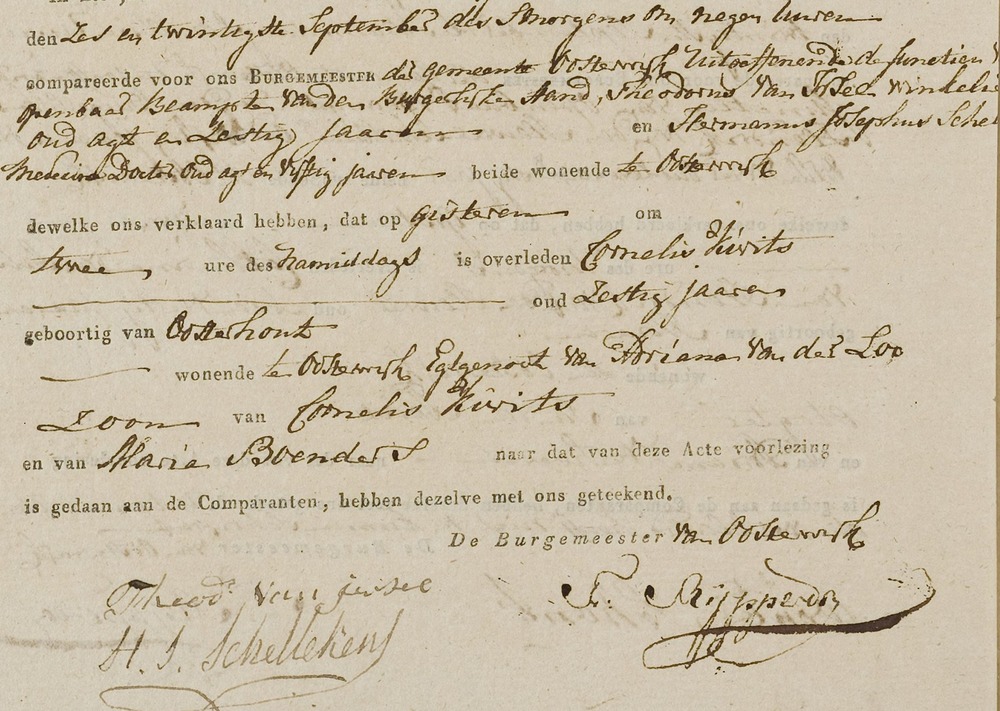 den Zes en twintigste September des Smorgens om negen uuren
compareerde voor ons BURGEMEESTER der gemeente Oosterwijk Uitoeffenende de functien
openbaar Beampte van den Burgerlijke Stand, Theodorus Van Iersel winkelie
oud agt en Zestig jaaren en Hermanus Josephus Schel
Medicine Doctor Oud agt en Vijftig jaaren beide wonende te Oosterwijk
dewelke ons verklaard hebben, dat op gisteren om
twee ure des Namiddags is overleden Cornelis Kivits
oud Zestig jaaren
geboortig van Oosterhout
wonende te Oosterwijk Egtgenoot Van Adriana Van der Loo
Zoon van Cornelis Kivits
en van Maria Boenders naar dat van deze Acte voorlezing
is gedaan aan de Comparanten, hebben dezelve met ons geteekend.
De Burgemeester Van Oosterwijk
Theod. Van iersel
H. J. Schellekens